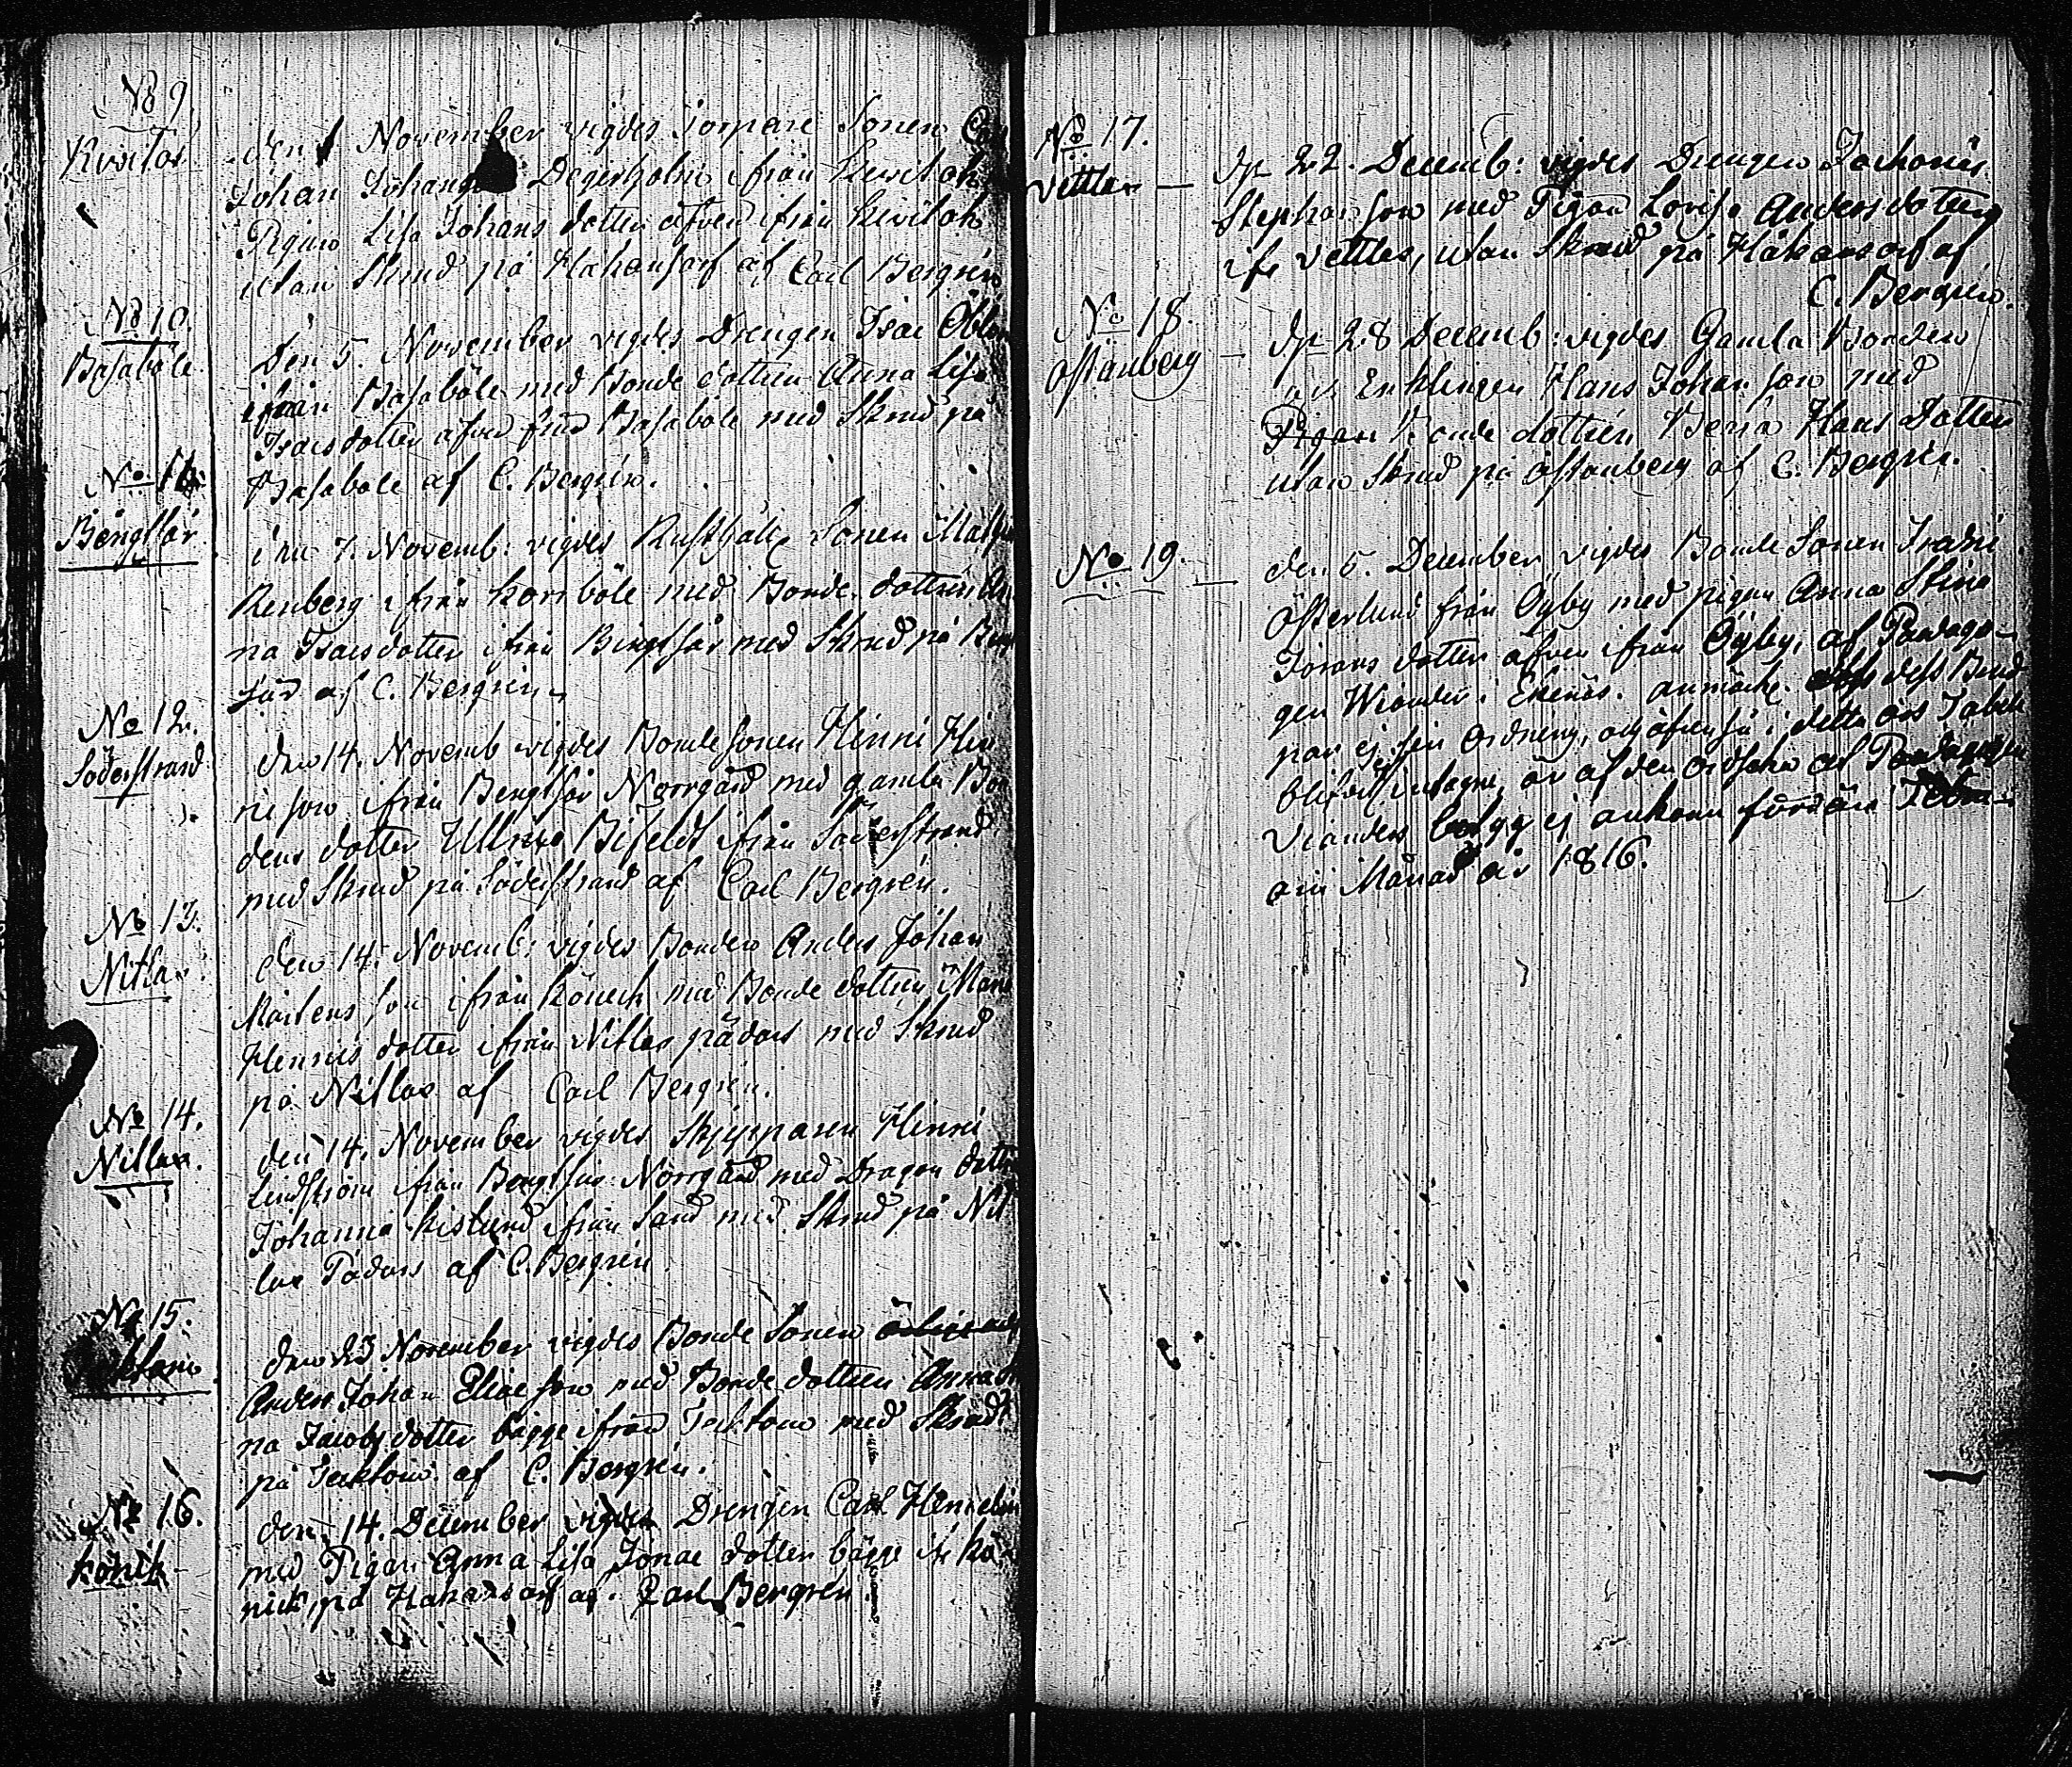 No 9.
Kivitok
den 1 November vigdes Torpare Sonen
Johan Johans Degerholm ifrån Kevitok
Pigan Lisa Johans dotter äfven ifrån Kevitok
utan Skrud på Håkansarf af Carl Bergrén
No 10.
Basaböle
Den 5. November vigdes Drengen Isac
ifrån Basaböle med Bonde dottren Anna Lisa
Isacs dotter äfven från Basaböle med Skrud på
Basaböle af C. Bergrén.
No 11.
Bengtsår
den 7. Novemb: vigdes Sonen
Renberg ifrån Korsböle med Bonde dottren An
na Isacs dotter ifrån Bengtsår med Skrud på Bengt
sår af C. Bergrén.
No 12.
Söderstrand
den 14. Novemb vigdes Bonde sonen Henric Hen
ric son ifrån Bengtsår Norrgård med gamla Bon
dens dotter Ulrica ifrån Söderstrand
med Skrud på Söderstrand af Carl Bergrén.
No 13.
Nitlax
den 14. Novemb: vigdes Bonden Anders Johan
Mårtens son ifrån Könick med Bonde dottren
Henrics dotter ifrån Nitlax pådars med Skrud
på Nitlax af Carl Bergrén.
No 14.
Nitlax.
den 14. November vigdes Skjepparen Henric
Lindström ifrån Bengtsår Norrgård med Dragon dottren
Johanna ifrån Sand med Skrud på Nit
lax Pådars af C. Bergrén
No 15.
den 23 November vigdes Bonde Sonen
Anders Johan Eliae son med Bonde dottren Anna
na Jacobs dotter bägge ifrån med Skrud
på af C. Bergrén.
No 16.
Könik
den 14. December vigdes Drengen Carl
med Pigan Anna Lisa Jonae dotter bägge ifr Kö-
nick, på Håkansarf af Carl Bergrén
No 17.
Vettlax
Dn 22. Decemb: vigdes Drengen Zachariæ
Stephanson med Pigan Lovisa Andersdotter
ifr Vettlax, utan Skrud på Håkansarf af
C. Bergrén.
No 18.
Östanberg
Dn 28 Decemb: vigdes Gamla Bonden
Enklingen Hans Johan son med
Pigan Bonde dottren Hans dotter
utan Skrud på Östanberg af C. Bergrén.
No 19.
den 5. December vigdes Bonde Sonen
Österlund från Öyby med pigan Anna Stina
Jörans dotter äfven ifrån Öyby, af Pædago-
gen Wiander i Ekenäs. anmärkn. dess Bind
par ej sin ordning, och äfven så i detta års Tabell
blifvit intagne, är af den orsaken at Pædagogen
Vianders ej ankom förr än Febru-
arii Månad år 1816.